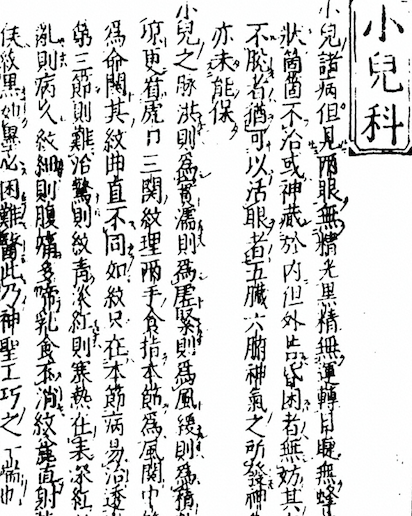 小兒科
小兒諸病但見兩眼無精光黑精無運轉目睫無鋒
狀箇箇不治或神藏於內但外若昏困者無妨其
不脫者猶可以活眼者五臟六腑神氣之所發神
亦未能保
小兒之脉洪則為實濡則為虛緊則為風緩則為積
須更看虎口三関紋理兩手食指本節為風関中
為命関其紋曲直不同如紋只在本節病易治透
第三節則難治驚則紋青淡紅則寒熱在表深紅
亂則病久紋細則腹痛多啼乳食不消紋麄直射
紋黑如墨必困難醫此乃神聖工巧之一端也